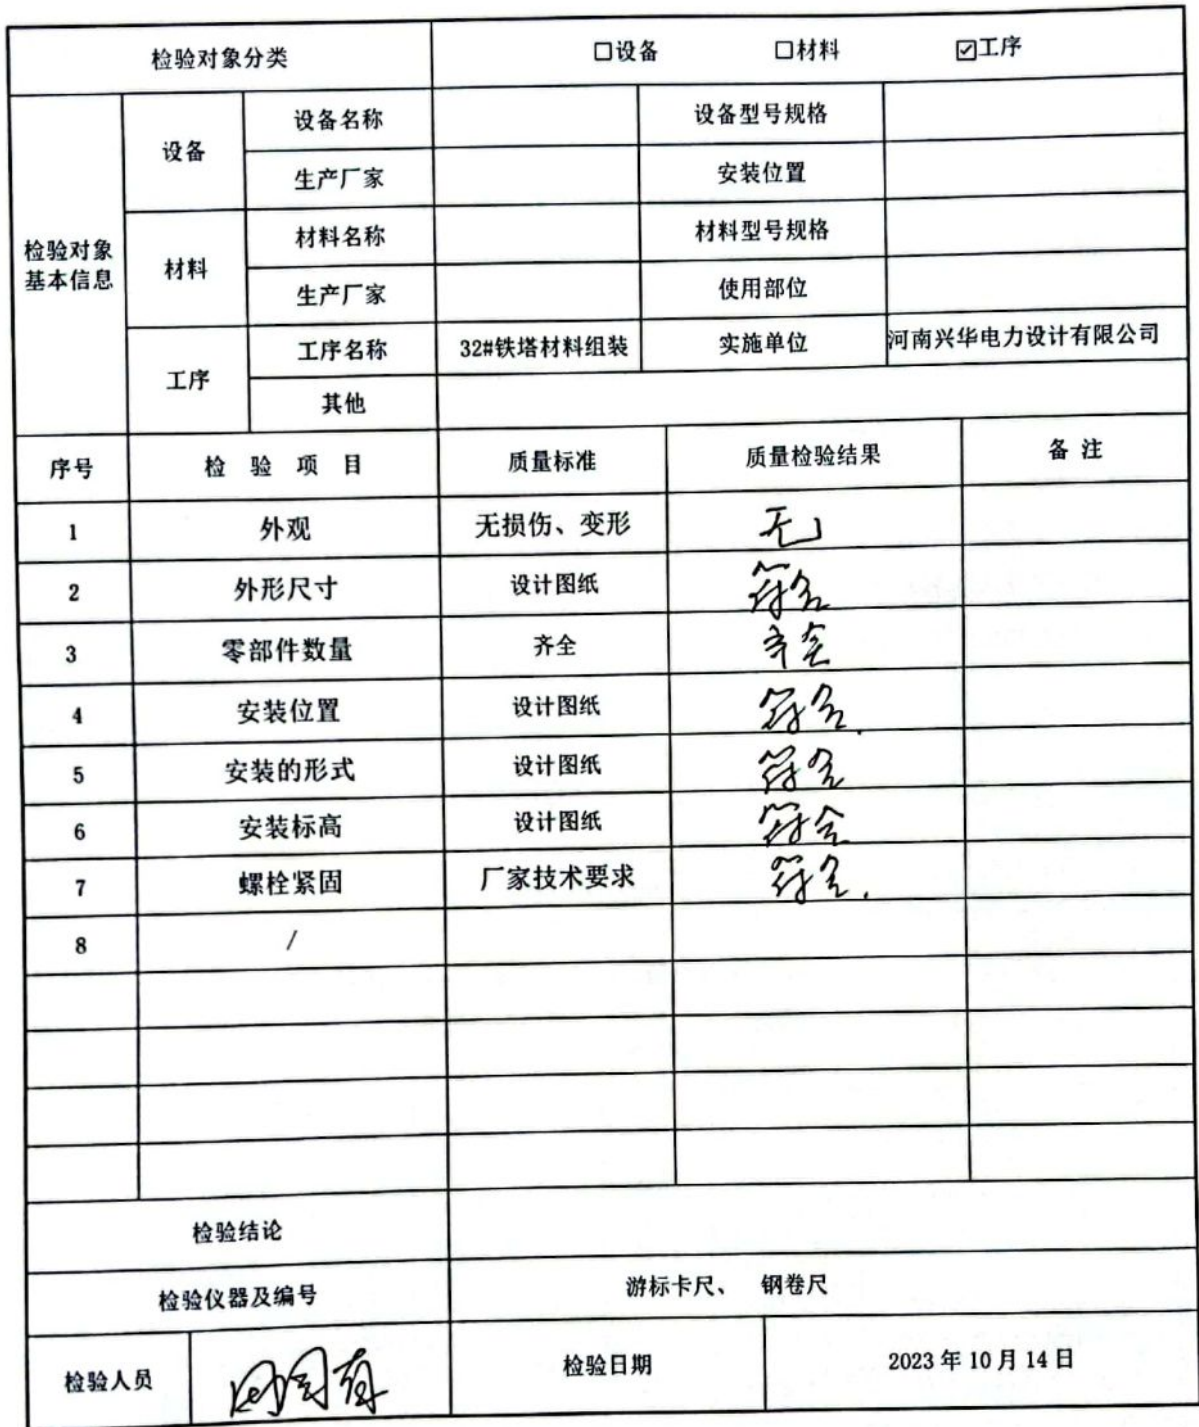 检验对象分类 □设备 □材料 ☑工序
检验对象基本信息 设备 设备名称 设备型号规格
生产厂家 安装位置
材料 材料名称 材料型号规格
生产厂家 使用部位
工序 工序名称 32#铁塔材料组装 实施单位 河南兴华电力设计有限公司
其他
序号 检验项目 质量标准 质量检验结果 备注
1 外观 无损伤、变形 无
2 外形尺寸 设计图纸 符合
3 零部件数量 齐全 齐全
4 安装位置 设计图纸 符合
5 安装的形式 设计图纸 符合
6 安装标高 设计图纸 符合
7 螺栓紧固 厂家技术要求 符合.
8 /
检验结论
检验仪器及编号 游标卡尺、 钢卷尺
检验人员 检验日期 2023 年 10 月 14 日